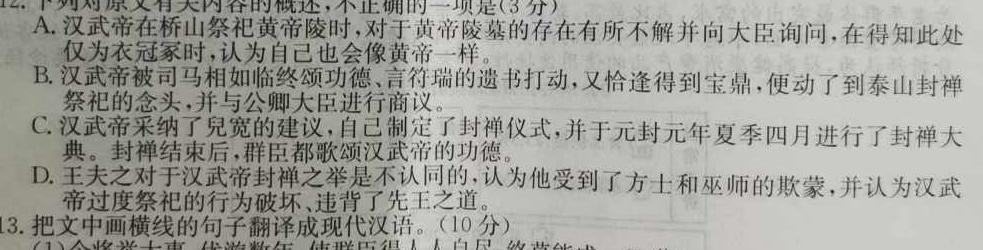 12. 下列对原文有关内容的概述,不正确的一项是(3分)
A. 汉武帝在桥山祭祀黄帝陵时,对于黄帝陵墓的存在有所不解并向大臣询问,在得知此处
仅为衣冠冢时,认为自己也会像黄帝一样。
B. 汉武帝被司马相如临终颂功德、言符瑞的遗书打动,又恰逢得到宝鼎,便动了到泰山封禅
祭祀的念头,并与公卿大臣进行商议。
C. 汉武帝采纳了兒宽的建议,自己制定了封禅仪式,并于元封元年夏季四月进行了封禅大
典。封禅结束后,群臣都歌颂汉武帝的功德。
D. 王夫之对于汉武帝封禅之举是不认同的,认为他受到了方士和巫师的欺蒙,并认为汉武
帝过度祭祀的行为破坏、违背了先王之道。
13. 把文中画横线的句子翻译成现代汉语。(10分)
(1)今将举大事,优游数年,使群臣得人人自尽,终莫能成